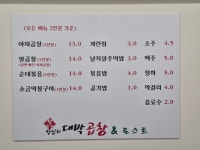 (모든 메뉴 2인분 기준)
야채곱창(1인분) 13.0
알곱창(1인분) 14.0
순대볶음(1인분) 12.0
소금막창구이(1인분) 14.0
계란찜 3.0
날치알주먹밥 3.0
볶음밥 4.0
공기밥 1.0
소주 4.5
맥주 5.0
청하 5.0
막걸리 4.0
음료수 2.0
대박곱창 &